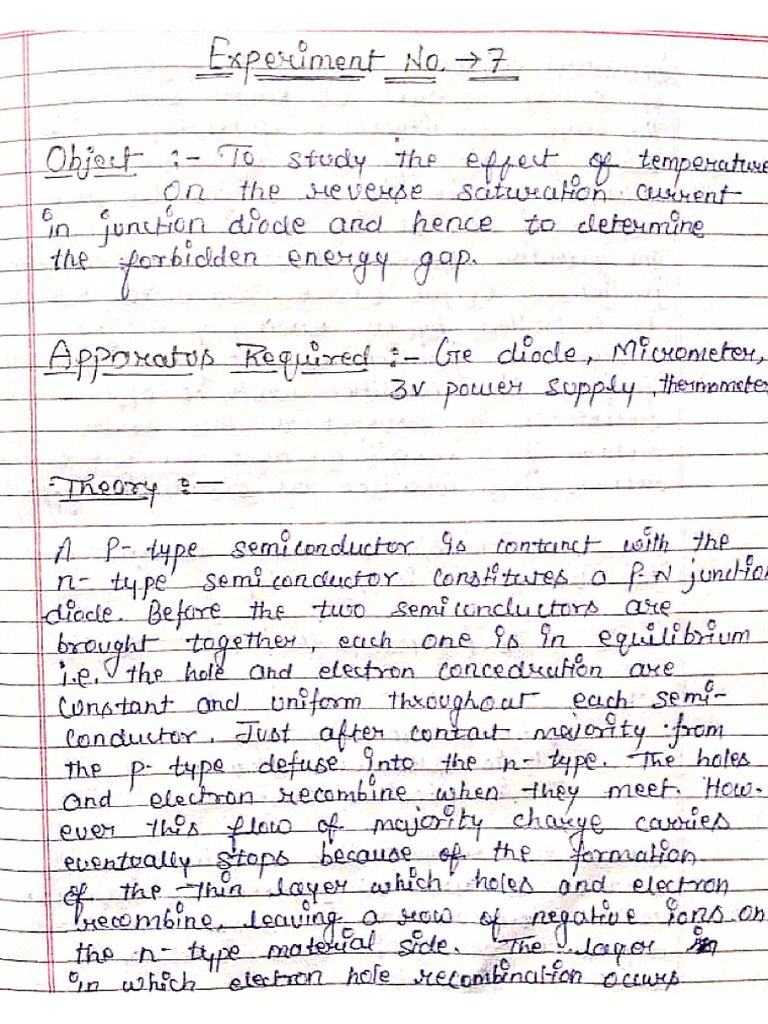 Experiment No. → 7
Object :- To study the effect of temperature
on the reverse saturation current
in junction diode and hence to determine
the forbidden energy gap.
Apparatus Required :- Ge diode, Micrometer,
3v power supply, thermometer
Theory :-
A P-type semiconductor is contanct with the
n-type semiconductor constitutes a P-N junction
diode. Before the two semiconductors are
brought together, each one is in equilibrium
i.e. the hole and electron concedration are
constant and uniform throughout each semi-
conductor. Just after contact majority from
the p-type defuse into the n-type. The holes
and electron recombine when they meet. How-
ever this flow of majority charge carries
eventually stops because of the formation
of the thin layer which holes and electron
recombine, leaving a row of negative ions on
the n-type material side. The layer in
in which electron hole recombination occurs